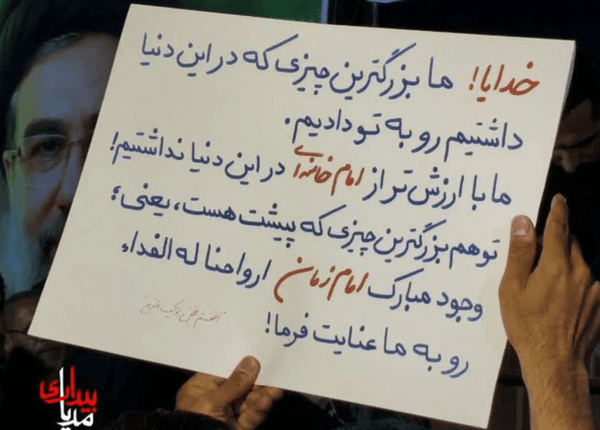 خدایا! ما بزرگترین چیزی که در این دنیا
داشتیم رو به تو دادیم.
ما با ارزش تر از امام خامنه‌ای در این دنیا نداشتیم!
تو هم بزرگترین چیزی که پیشت هست، یعنی؛
وجود مبارک امام زمان ارواحنا له الفداء
رو به ما عنایت فرما!
اللهم عجل لولیک الفرج
بیداری
مدیا